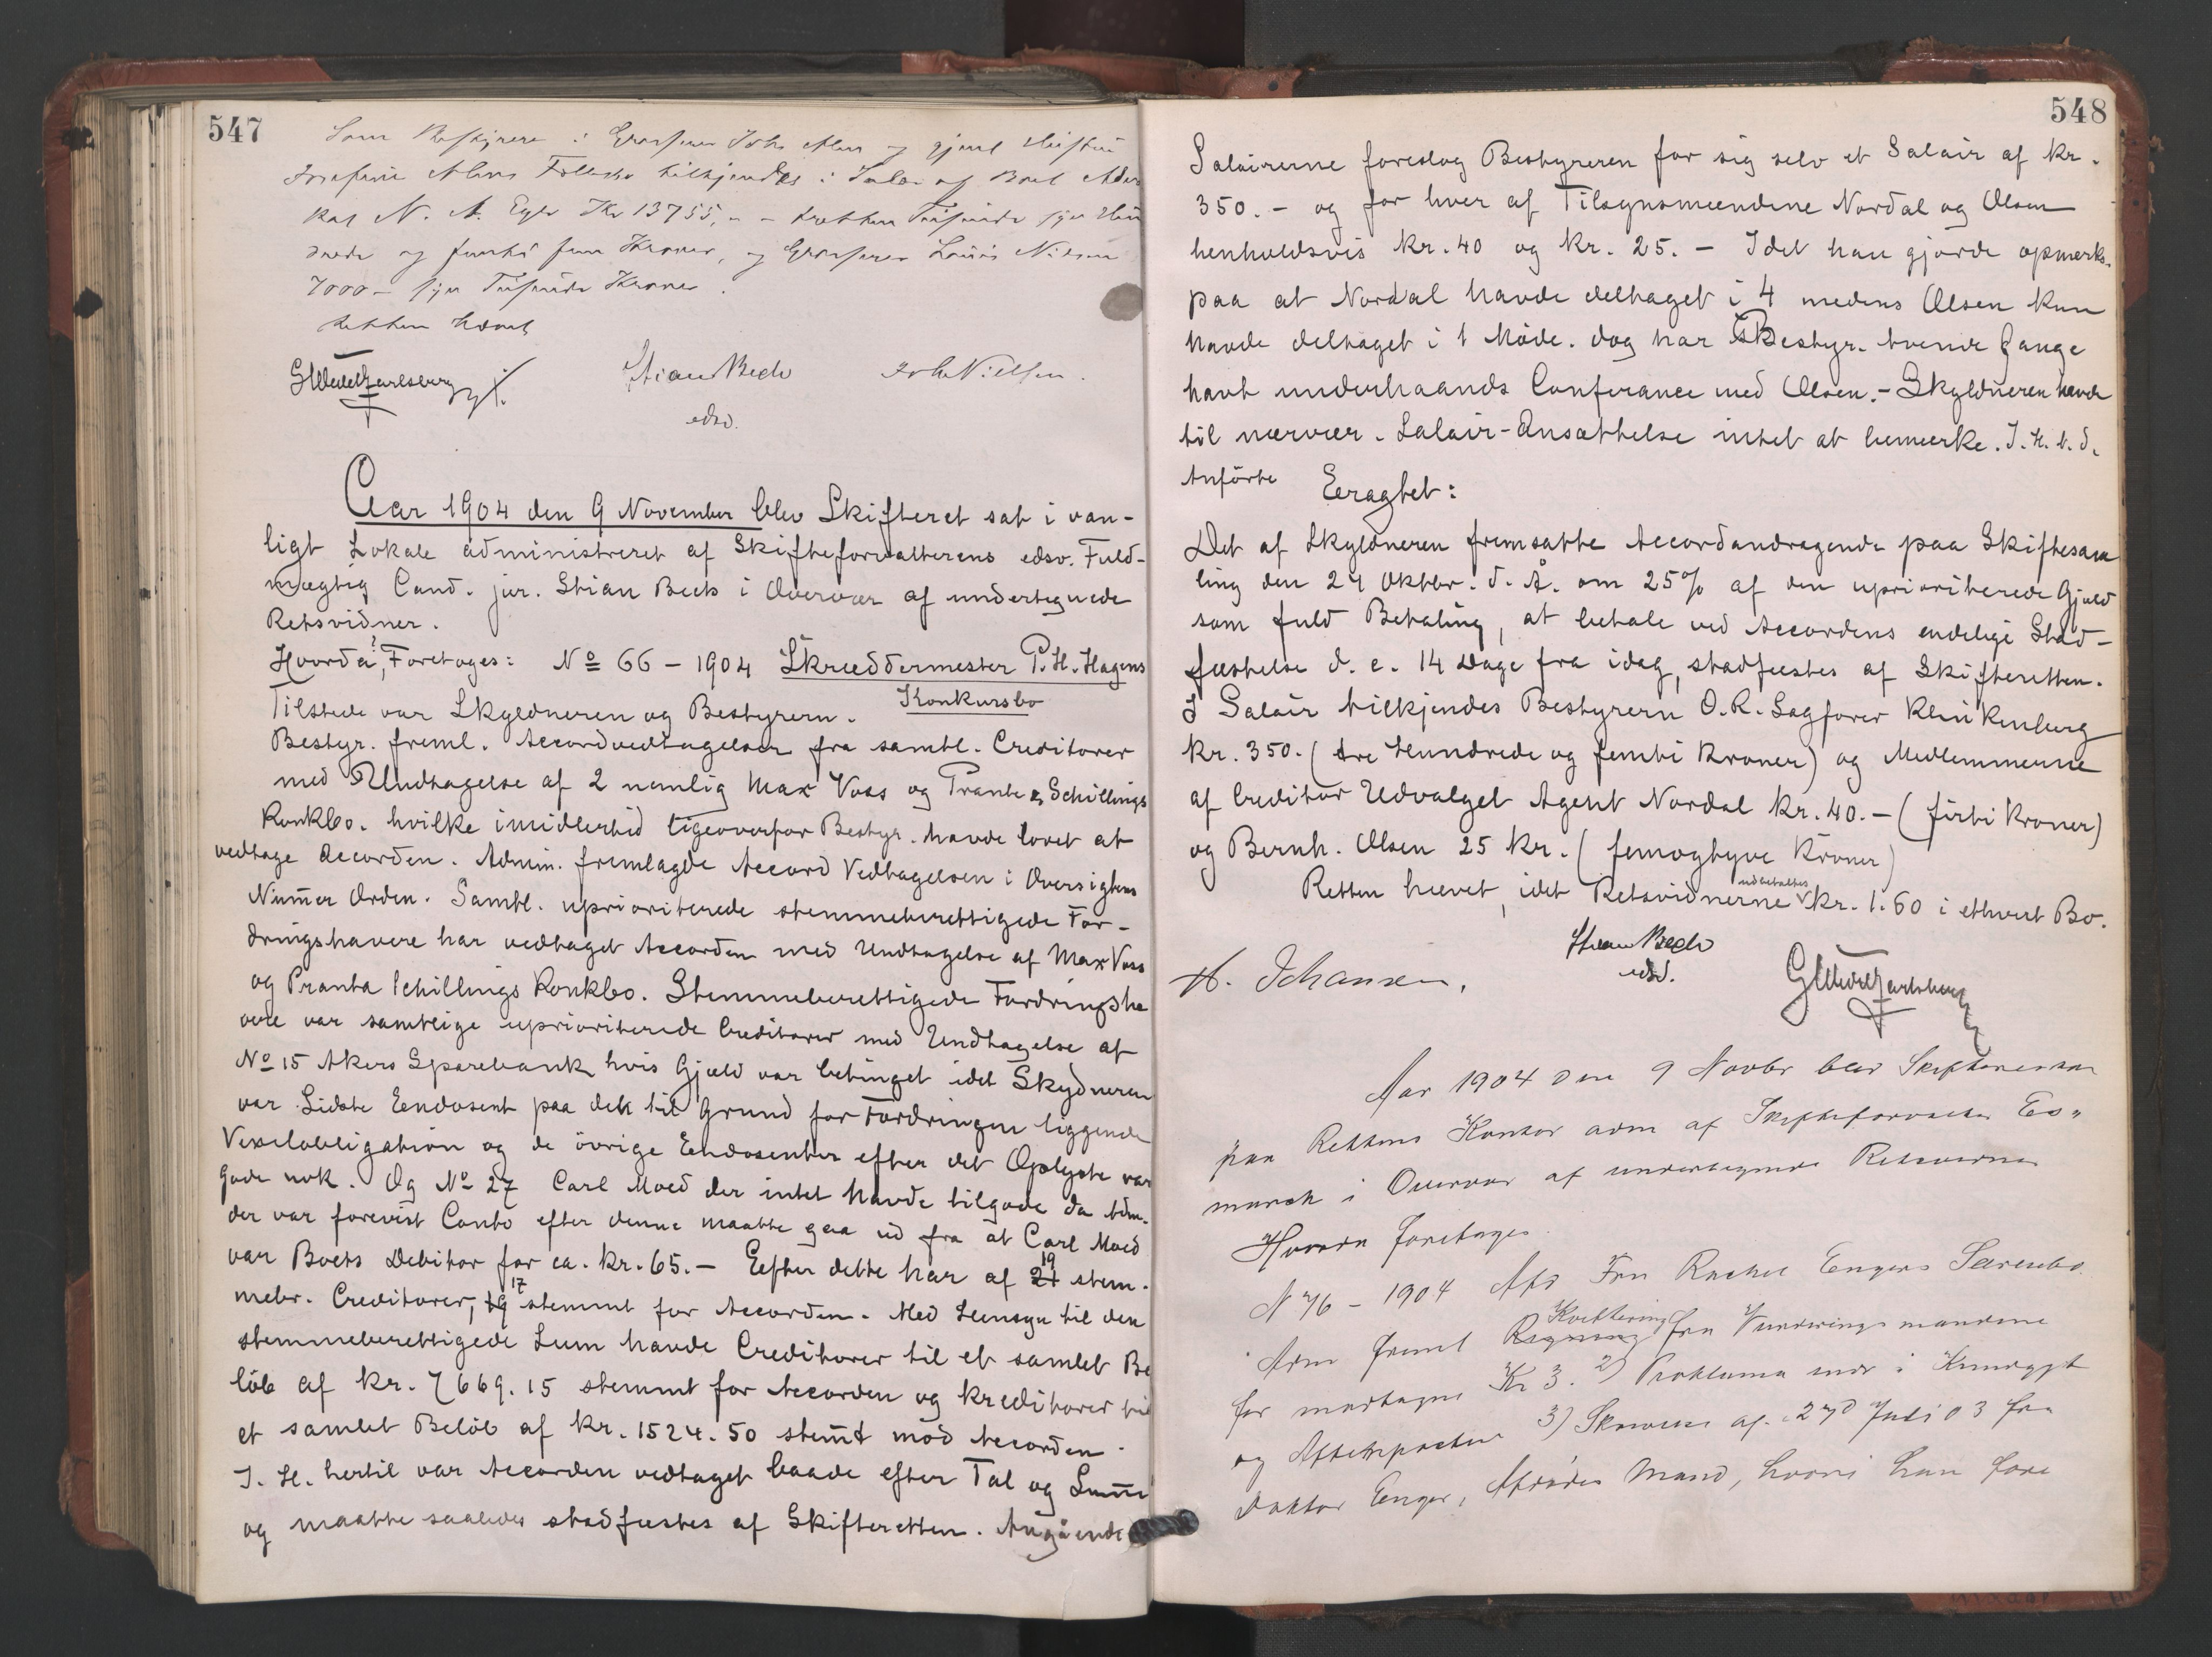 547
Som Bestyrere i Grosserer Johs Alm og gjenl
Josefine Alms Fællesbo tilkjendes i Salær af Boet
N. A. Kr 13755,- - tretten Tusinde syv Hun
drede og femti fem Kroner, og Grosserer Louis Nilsen
7000 - syv Tusinde Kroner.
Retten hævet
GWedelJarlsberg Stian Bech Joh Nielsen.
edsv.
Aar 1904 den 9 November blev Skifteret sat i van-
ligt Lokale administreret af Skifteforvalterens edsv. Fuld-
mægtig Cand. jur. Stian Bech i Overvær af undertegnede
Retsvidner.
Hvorda, Foretoges: No 66 - 1904 Skræddermester P. H. Hagens
Konkursbo
Tilstede var Skyldneren og Bestyrern.
Bestyr. freml. Accordvedtagelser fra samtl. Creditorer
med Undtagelse af 2 nemlig Max Voss og Prante & Schillings
Konkbo. hvilke imidlertid ligeoverfor Bestyr. havde lovet at
vedtage Accorden. Admin. fremlagde Accord Vedtagelsen i Oversigtens
Numer Orden. Samtl. uprioriterede stemmeberettigede For-
dringshavere har vedtaget Accorden med Undtagelse af Max Voss
og Pranta Schillings Konkbo. Stemmeberettigede Fordringsha
vere var samtlige uprioriterede Creditorer med Undtagelse af
No 15 Akers Sparebank hvis Gjæld var betinget idet Skydneren
var Sidste Eendosent paa dek til Grund for Fordringen liggende
Vexelobligation og de övrige Endosenter efter det Oplyste var
gode nok. Og No 27 Carl Moed der intet havde tilgode da
der var forevist Conto efter denne maatte gaa ud fra at Carl Moed
var Boets Debitor for ca. kr. 65. - Eefter dette har af 21 19 stem-
mebr. Creditorer, 19 17 stemmt for Accorden. Med Hensyn til den
stemmeberettigede Sum havde Creditorer til et samlet Be
löb af kr. 7669.15 stemmt for Accorden og kreditorer til
et samlet Belöb af kr. 1524.50 stemt mod Accorden.
I. H. hertil var Accorden vedtaget baade efter Tal og Summe
og maatte saaledes stadfæstes af Skifteretten. Angående
548
Salairerne foreslog Bestyreren for sig selv et Salair af kr.
350. - og for hver af Tilsynsmændene Nordal og Olsen
henholdsvis kr. 40 og kr. 25. - Idet han gjorde opmerks.
paa at Nordal havde deltaget i 4 medens Olsen kun
havde deltaget i 1 Möde. dog har Bestyr. tvende Gange
havt underhaands Conferance med Olsen. - Skyldneren havde
til nærvær. Salair-Ansættelse intet at bemærke. I. H. t. d.
Anförte Eeragtet:
Det af Skyldneren fremsatte Accordandragende paa Skiftesam
ling den 24 Oktbr. d. Å. om 25% af den uprioriterede Gjæld
som fuld Betaling, at betale ved Accordens endelige Stad-
fæstelse d. e. 14 Dage fra idag, stadfæstes af Skifteretten.
I Salair tilkjendes Bestyrern O.R. Sagförer Klinkenberg
kr. 350. (tre Hundrede og femti kroner) og Medlemmerne
af Creditor Udvalget Agent Nordal kr. 40. - (firti Kroner)
og Bernh. Olsen 25 kr. (femogtyve Kroner)
Retten hævet, idet Retsvidnerne udbetaltes kr. 1.60 i ethvert Bo.
H. Johansen, Stian Bech GWedelJarlsberg
edsv.
Aar 1904 den 9 Novbr blev Skifteret sat
paa Rettens Kontor adm af Skifteforvalter Es-
march i Overvær af undertegnede Retsvidner
Hvorda foretoges
N 76 - 1904 Afd Fru Rachel Engers Særebo.
Adm freml Regning Kvittering fra Vurderingsmændene
for modtagne Kr 3. 2) Proklama indr i Kundgjt
og Aftenposten 3) Skrivelse af 27d Juli 03 fra
Doktor Enger, Afdödes Mand, hvori han fore